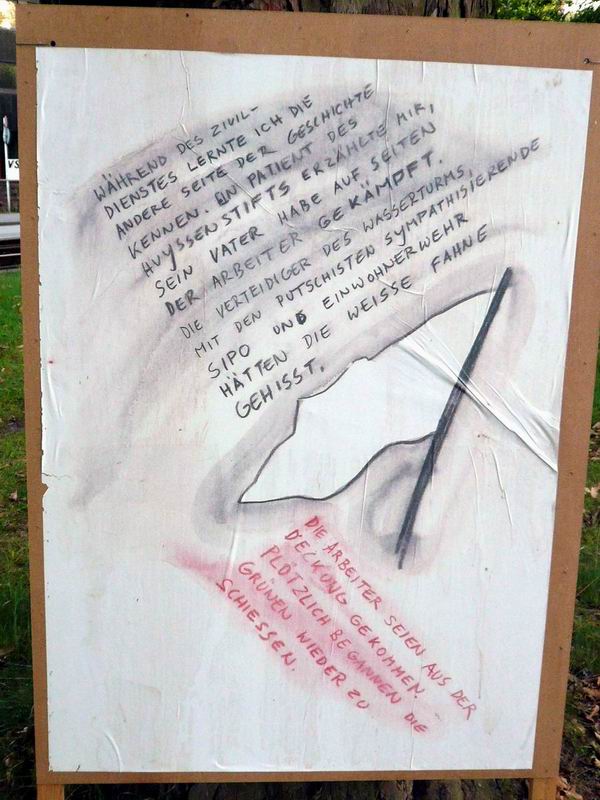 WÄHREND DES ZIVIL-
DIENSTES LERNTE ICH DIE
ANDERE SEITE DER GESCHICHTE
KENNEN. EIN PATIENT DES
HUYSSENSTIFTS ERZÄHLTE MIR,
SEIN VATER HABE AUF SEITEN
DER ARBEITER GEKÄMPFT.
DIE VERTEIDIGER DES WASSERTURMS,
MIT DEN PUTSCHISTEN SYMPATHISIERENDE
SIPO UND EINWOHNERWEHR
HÄTTEN DIE WEISSE FAHNE
GEHISST.
DIE ARBEITER SEIEN AUS DER
DECKUNG GEKOMMEN.
PLÖTZLICH BEGANNEN DIE
GRÜNEN WIEDER ZU
SCHIESSEN.
VS